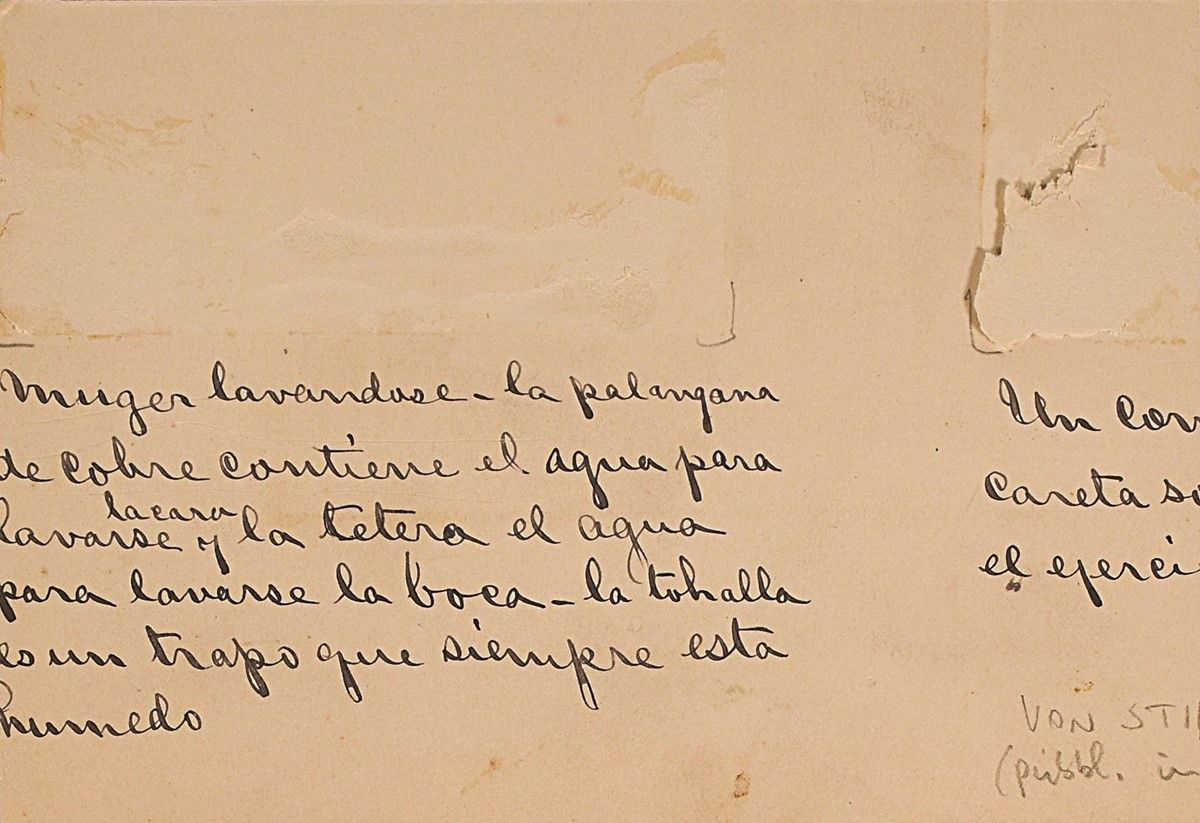 Muger lavandose - la palangana
de cobre contiene el agua para
la cara
lavarse y la tetera el agua
para lavarse la boca - la tohalla
es un trapo que siempre esta
humedo
Un con
careta so
el ejerci
VON STI
(pubbl. in